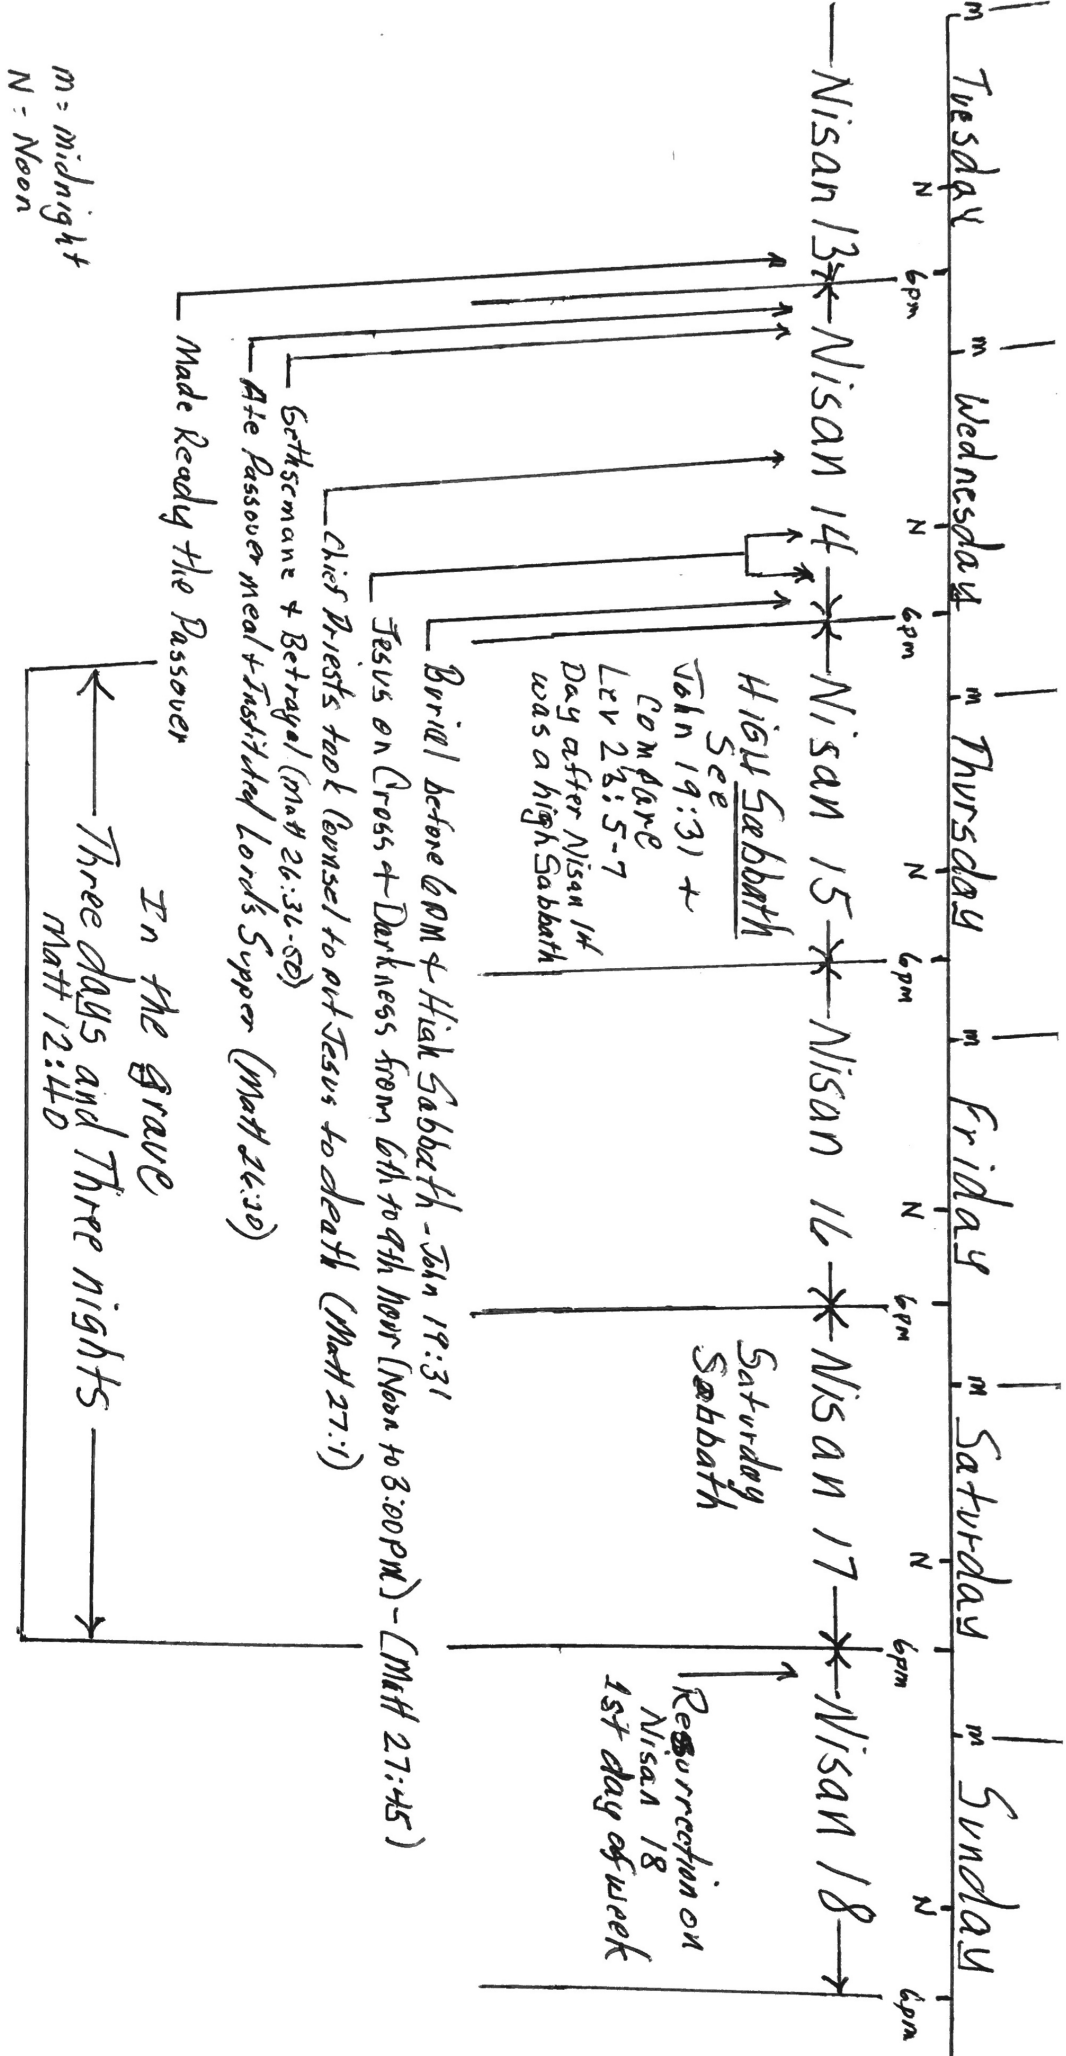 m Tuesday N 6pm m Wednesday N 6pm m Thursday N 6pm m Friday N 6pm m Saturday N 6pm m Sunday N 6pm
Nisan 13 Nisan 14 Nisan 15 Nisan 16 Nisan 17 Nisan 18
HIGH Sabbath
See
John 19:31 +
Compare
Lev 23:5-7
Day after Nisan 14
was a high Sabbath
Saturday
Sabbath
Resurrection on
Nisan 18
1st day of week
Burial before 6pm + High Sabbath - John 19:31
Jesus on Cross + Darkness from 6th to 9th hour (Noon to 3:00PM) - (Matt 27:45)
Chief Priests took Counsel to put Jesus to death (Matt 27:1)
Gethsemane + Betrayal (Matt 26:36-50)
Ate Passover meal + Instituted Lord's Supper (Matt 26:20)
Made Ready the Passover
In the grave
Three days and Three nights
Matt 12:40
m = midnight
N = Noon